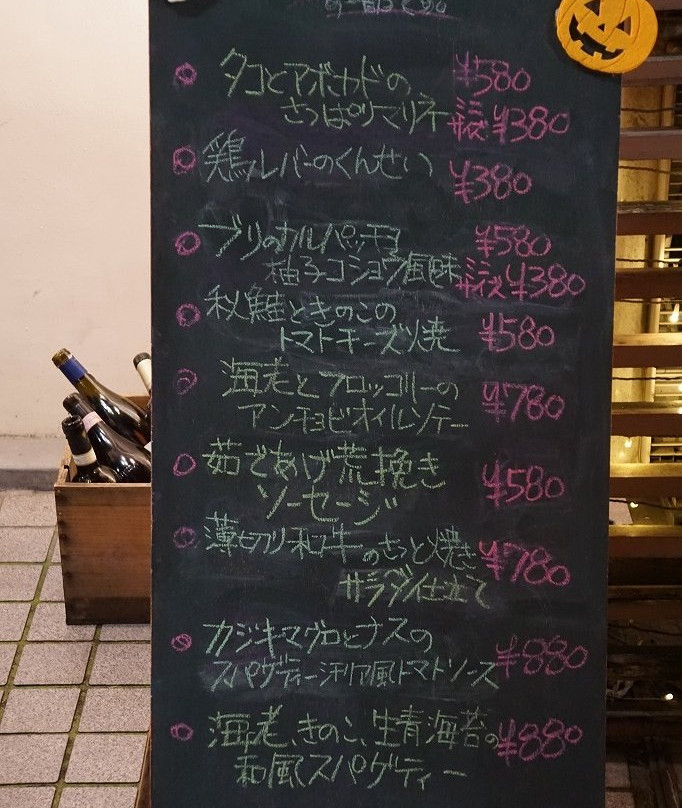 タコとアボカドの ¥580
さっぱりマリネ ミニサイズ ¥380
鶏レバーのくんせい ¥380
ブリのカルパッチョ ¥580
柚子コショウ風味 ミニサイズ ¥380
秋鮭ときのこの
トマトチーズ焼 ¥580
海老とブロッコリーの
アンチョビオイルソテー ¥780
茹であげ荒挽き
ソーセージ ¥580
薄切り和牛のさっと焼き ¥780
サラダ仕立て
カジキマグロとナスの
スパゲティーシチリア風トマトソース ¥880
海老、きのこ、生青海苔の ¥880
和風スパゲティー